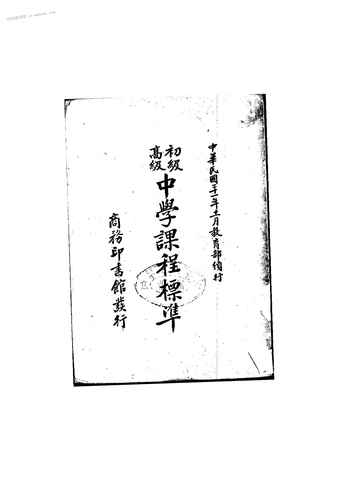 中華民國二十一年十一月教育部頒行
初級
高級
中學課程標準
商務印書館發行